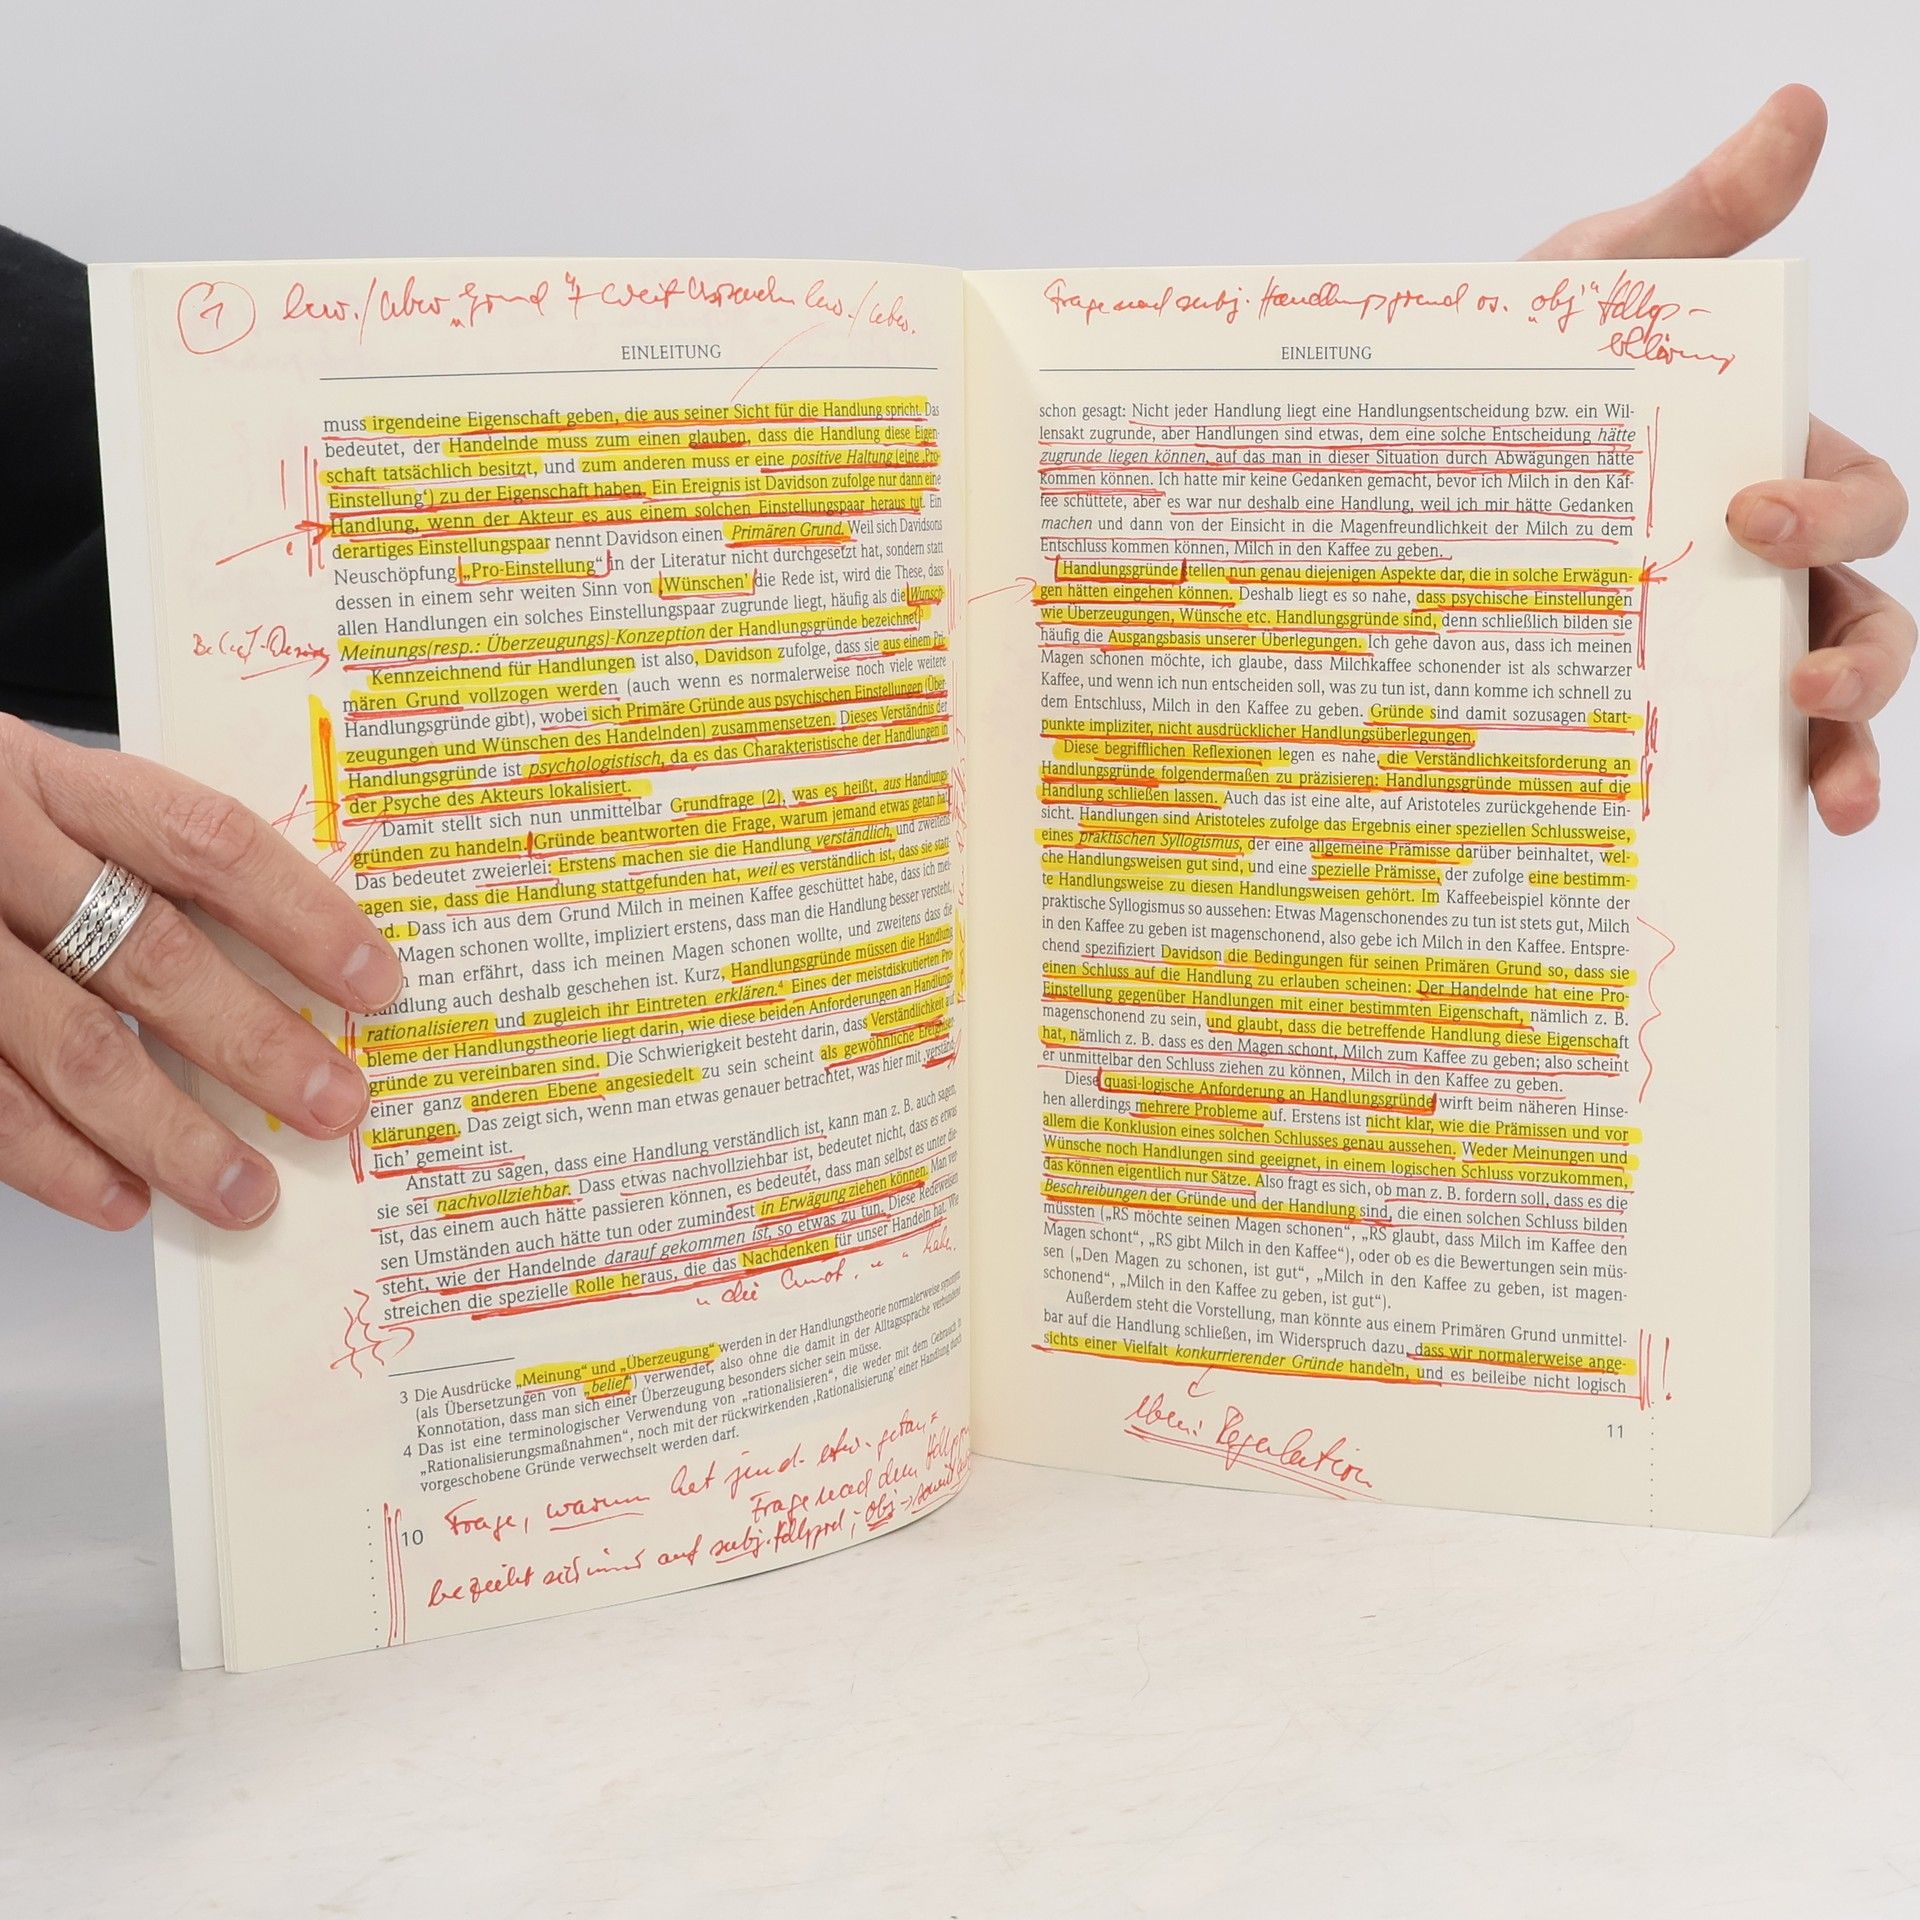 1
EINLEITUNG
muss irgendeine Eigenschaft geben, die aus seiner Sicht für die Handlung spricht. Das
bedeutet, der Handelnde muss zum einen glauben, dass die Handlung diese Eigen-
schaft tatsächlich besitzt, und zum anderen muss er eine positive Haltung (eine ‚Pro-
Einstellung‘) zu der Eigenschaft haben. Ein Ereignis ist Davidson zufolge nur dann eine
Handlung, wenn der Akteur es aus einem solchen Einstellungspaar heraus tut. Ein
derartiges Einstellungspaar nennt Davidson einen Primären Grund. Weil sich Davidsons
Neuschöpfung „Pro-Einstellung“ in der Literatur nicht durchgesetzt hat, sondern statt
dessen in einem sehr weiten Sinn von ‚Wünschen‘ die Rede ist, wird die These, dass
allen Handlungen ein solches Einstellungspaar zugrunde liegt, häufig als die Wunsch-
Meinungs(resp.: Überzeugungs)-Konzeption der Handlungsgründe bezeichnet.
Belief-Desire
Kennzeichnend für Handlungen ist also, Davidson zufolge, dass sie aus einem Pri-
mären Grund vollzogen werden (auch wenn es normalerweise noch viele weitere
Handlungsgründe gibt), wobei sich Primäre Gründe aus psychischen Einstellungen (Über-
zeugungen und Wünschen des Handelnden) zusammensetzen. Dieses Verständnis der
Handlungsgründe ist psychologistisch, da es das Charakteristische der Handlungen in
der Psyche des Akteurs lokalisiert.
Damit stellt sich nun unmittelbar Grundfrage (2), was es heißt, aus Handlungs-
gründen zu handeln. Gründe beantworten die Frage, warum jemand etwas getan hat.
Das bedeutet zweierlei: Erstens machen sie die Handlung verständlich, und zweitens
sagen sie, dass die Handlung stattgefunden hat, weil es verständlich ist, dass sie statt
nd. Dass ich aus dem Grund Milch in meinen Kaffee geschüttet habe, dass ich mei-
Magen schonen wollte, impliziert erstens, dass man die Handlung besser versteht,
n man erfährt, dass ich meinen Magen schonen wollte, und zweitens dass die
Handlung auch deshalb geschehen ist. Kurz, Handlungsgründe müssen die Handlung
rationalisieren und zugleich ihr Eintreten erklären.4 Eines der meistdiskutierten Pro-
bleme der Handlungstheorie liegt darin, wie diese beiden Anforderungen an Handlungs-
gründe zu vereinbaren sind. Die Schwierigkeit besteht darin, dass Verständlichkeit auf
einer ganz anderen Ebene angesiedelt zu sein scheint als gewöhnliche Ereigniser-
klärungen. Das zeigt sich, wenn man etwas genauer betrachtet, was hier mit ‚verständ-
lich‘ gemeint ist.
Anstatt zu sagen, dass eine Handlung verständlich ist, kann man z. B. auch sagen,
sie sei nachvollziehbar. Dass etwas nachvollziehbar ist, bedeutet nicht, dass es etwas
ist, das einem auch hätte passieren können, es bedeutet, dass man selbst es unter die-
sen Umständen auch hätte tun oder zumindest in Erwägung ziehen können. Man ver-
steht, wie der Handelnde darauf gekommen ist, so etwas zu tun. Diese Redeweisen
streichen die spezielle Rolle heraus, die das Nachdenken für unser Handeln hat. Wie
3 Die Ausdrücke „Meinung“ und „Überzeugung“ werden in der Handlungstheorie normalerweise synonym
(als Übersetzungen von „belief“) verwendet, also ohne die damit in der Alltagssprache verbundene
Konnotation, dass man sich einer Überzeugung besonders sicher sein müsse.
4 Das ist eine terminologischer Verwendung von „rationalisieren“, die weder mit dem Gebrauch in
„Rationalisierungsmaßnahmen“, noch mit der rückwirkenden ‚Rationalisierung‘ einer Handlung durch
vorgeschobene Gründe verwechselt werden darf.
Frage, warum hat jmd. etw. getan
Frage nach dem
10
bezieht sich auf subj. obj
Frage nach subj. Handlungsgrund os. „obj“
EINLEITUNG
schon gesagt: Nicht jeder Handlung liegt eine Handlungsentscheidung bzw. ein Wil-
lensakt zugrunde, aber Handlungen sind etwas, dem eine solche Entscheidung hätte
zugrunde liegen können, auf das man in dieser Situation durch Abwägungen hätte
kommen können. Ich hatte mir keine Gedanken gemacht, bevor ich Milch in den Kaf-
fee schüttete, aber es war nur deshalb eine Handlung, weil ich mir hätte Gedanken
machen und dann von der Einsicht in die Magenfreundlichkeit der Milch zu dem
Entschluss kommen können, Milch in den Kaffee zu geben.
Handlungsgründe stellen nun genau diejenigen Aspekte dar, die in solche Erwägun-
gen hätten eingehen können. Deshalb liegt es so nahe, dass psychische Einstellungen
wie Überzeugungen, Wünsche etc. Handlungsgründe sind, denn schließlich bilden sie
häufig die Ausgangsbasis unserer Überlegungen. Ich gehe davon aus, dass ich meinen
Magen schonen möchte, ich glaube, dass Milchkaffee schonender ist als schwarzer
Kaffee, und wenn ich nun entscheiden soll, was zu tun ist, dann komme ich schnell zu
dem Entschluss, Milch in den Kaffee zu geben. Gründe sind damit sozusagen Start-
punkte impliziter, nicht ausdrücklicher Handlungsüberlegungen.
Diese begrifflichen Reflexionen legen es nahe, die Verständlichkeitsforderung an
Handlungsgründe folgendermaßen zu präzisieren: Handlungsgründe müssen auf die
Handlung schließen lassen. Auch das ist eine alte, auf Aristoteles zurückgehende Ein-
sicht. Handlungen sind Aristoteles zufolge das Ergebnis einer speziellen Schlussweise,
eines praktischen Syllogismus, der eine allgemeine Prämisse darüber beinhaltet, wel-
che Handlungsweisen gut sind, und eine spezielle Prämisse, der zufolge eine bestimm-
te Handlungsweise zu diesen Handlungsweisen gehört. Im Kaffeebeispiel könnte der
praktische Syllogismus so aussehen: Etwas Magenschonendes zu tun ist stets gut, Milch
in den Kaffee zu geben ist magenschonend, also gebe ich Milch in den Kaffee. Entspre-
chend spezifiziert Davidson die Bedingungen für seinen Primären Grund so, dass sie
einen Schluss auf die Handlung zu erlauben scheinen: Der Handelnde hat eine Pro-
Einstellung gegenüber Handlungen mit einer bestimmten Eigenschaft, nämlich z. B.
magenschonend zu sein, und glaubt, dass die betreffende Handlung diese Eigenschaft
hat, nämlich z. B. dass es den Magen schont, Milch zum Kaffee zu geben; also scheint
er unmittelbar den Schluss ziehen zu können, Milch in den Kaffee zu geben.
Diese quasi-logische Anforderung an Handlungsgründe wirft beim näheren Hinse-
hen allerdings mehrere Probleme auf. Erstens ist nicht klar, wie die Prämissen und vor
allem die Konklusion eines solchen Schlusses genau aussehen. Weder Meinungen und
Wünsche noch Handlungen sind geeignet, in einem logischen Schluss vorzukommen,
das können eigentlich nur Sätze. Also fragt es sich, ob man z. B. fordern soll, dass es die
Beschreibungen der Gründe und der Handlung sind, die einen solchen Schluss bilden
müssten („RS möchte seinen Magen schonen“, „RS glaubt, dass Milch im Kaffee den
Magen schont“, „RS gibt Milch in den Kaffee“), oder ob es die Bewertungen sein müs-
sen („Den Magen zu schonen, ist gut“, „Milch in den Kaffee zu geben, ist magen-
schonend“, „Milch in den Kaffee zu geben, ist gut“).
Außerdem steht die Vorstellung, man könnte aus einem Primären Grund unmittel-
bar auf die Handlung schließen, im Widerspruch dazu, dass wir normalerweise ange-
sichts einer Vielfalt konkurrierender Gründe handeln, und es beileibe nicht logisch
!
eben: Regulation
11